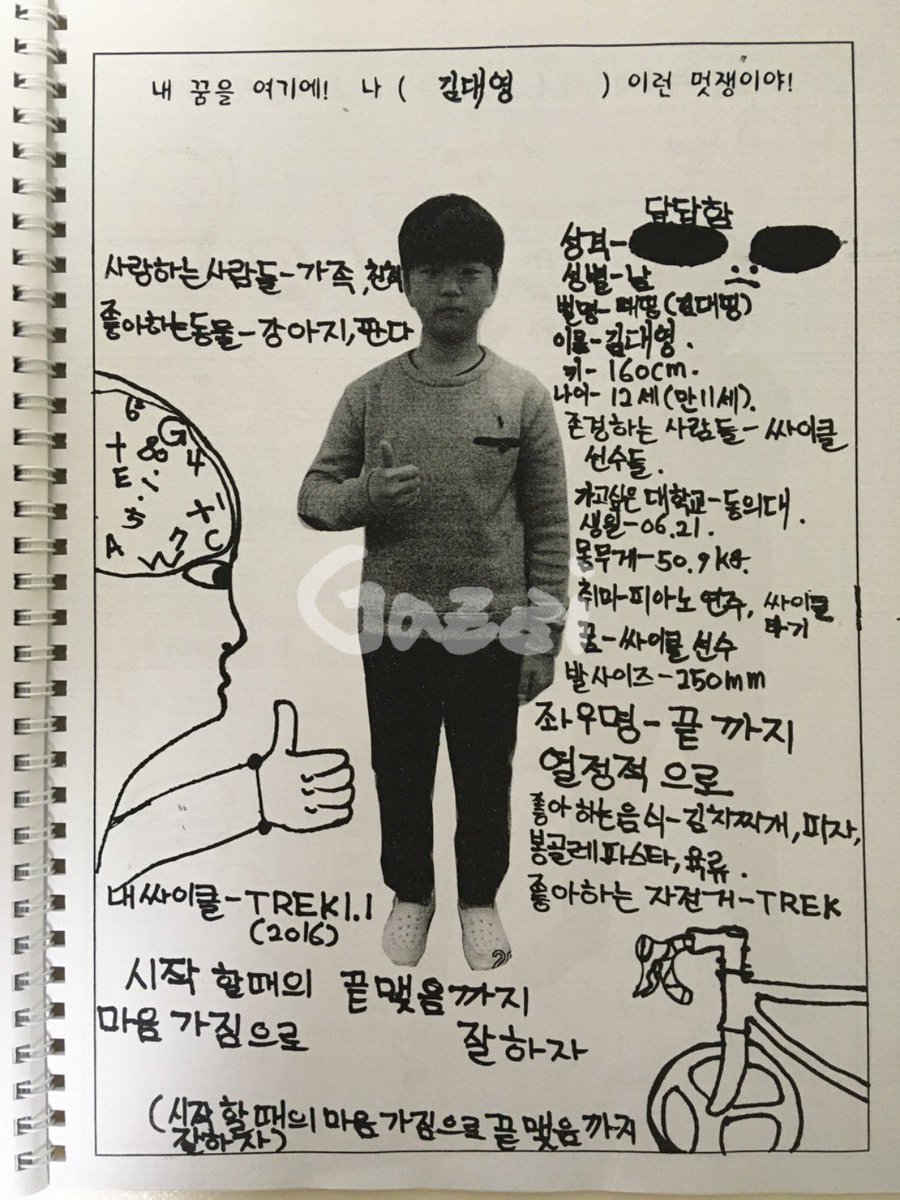 내 꿈을 여기에! 나 ( 김대영 ) 이런 멋쟁이야!
사랑하는 사람들-가족, 친척
좋아하는동물-강아지, 판다
답답함
성격-
성별-남
별명-때띵(김대띵)
이름-김대영.
키-160cm.
나이-12세(만11세).
존경하는 사람들-싸이클
선수들.
가고싶은 대학교-동의대.
생일-06.21.
몸무게-50.9kg.
취미-피아노 연주, 싸이클
타기
꿈-싸이클 선수
발사이즈-250mm
좌우명-끝까지
열정적으로
좋아하는음식-김치찌개, 피자,
봉골레파스타, 육류.
좋아하는 자전거-TREK
6 G + 80 4 E ÷ 5 + 1 A W 7 C
내싸이클-TREK1.1
(2016)
시작 할때의 끝맺음까지
마음가짐으로 잘하자
(시작할때의 마음가짐으로 끝맺음까지
잘하자)